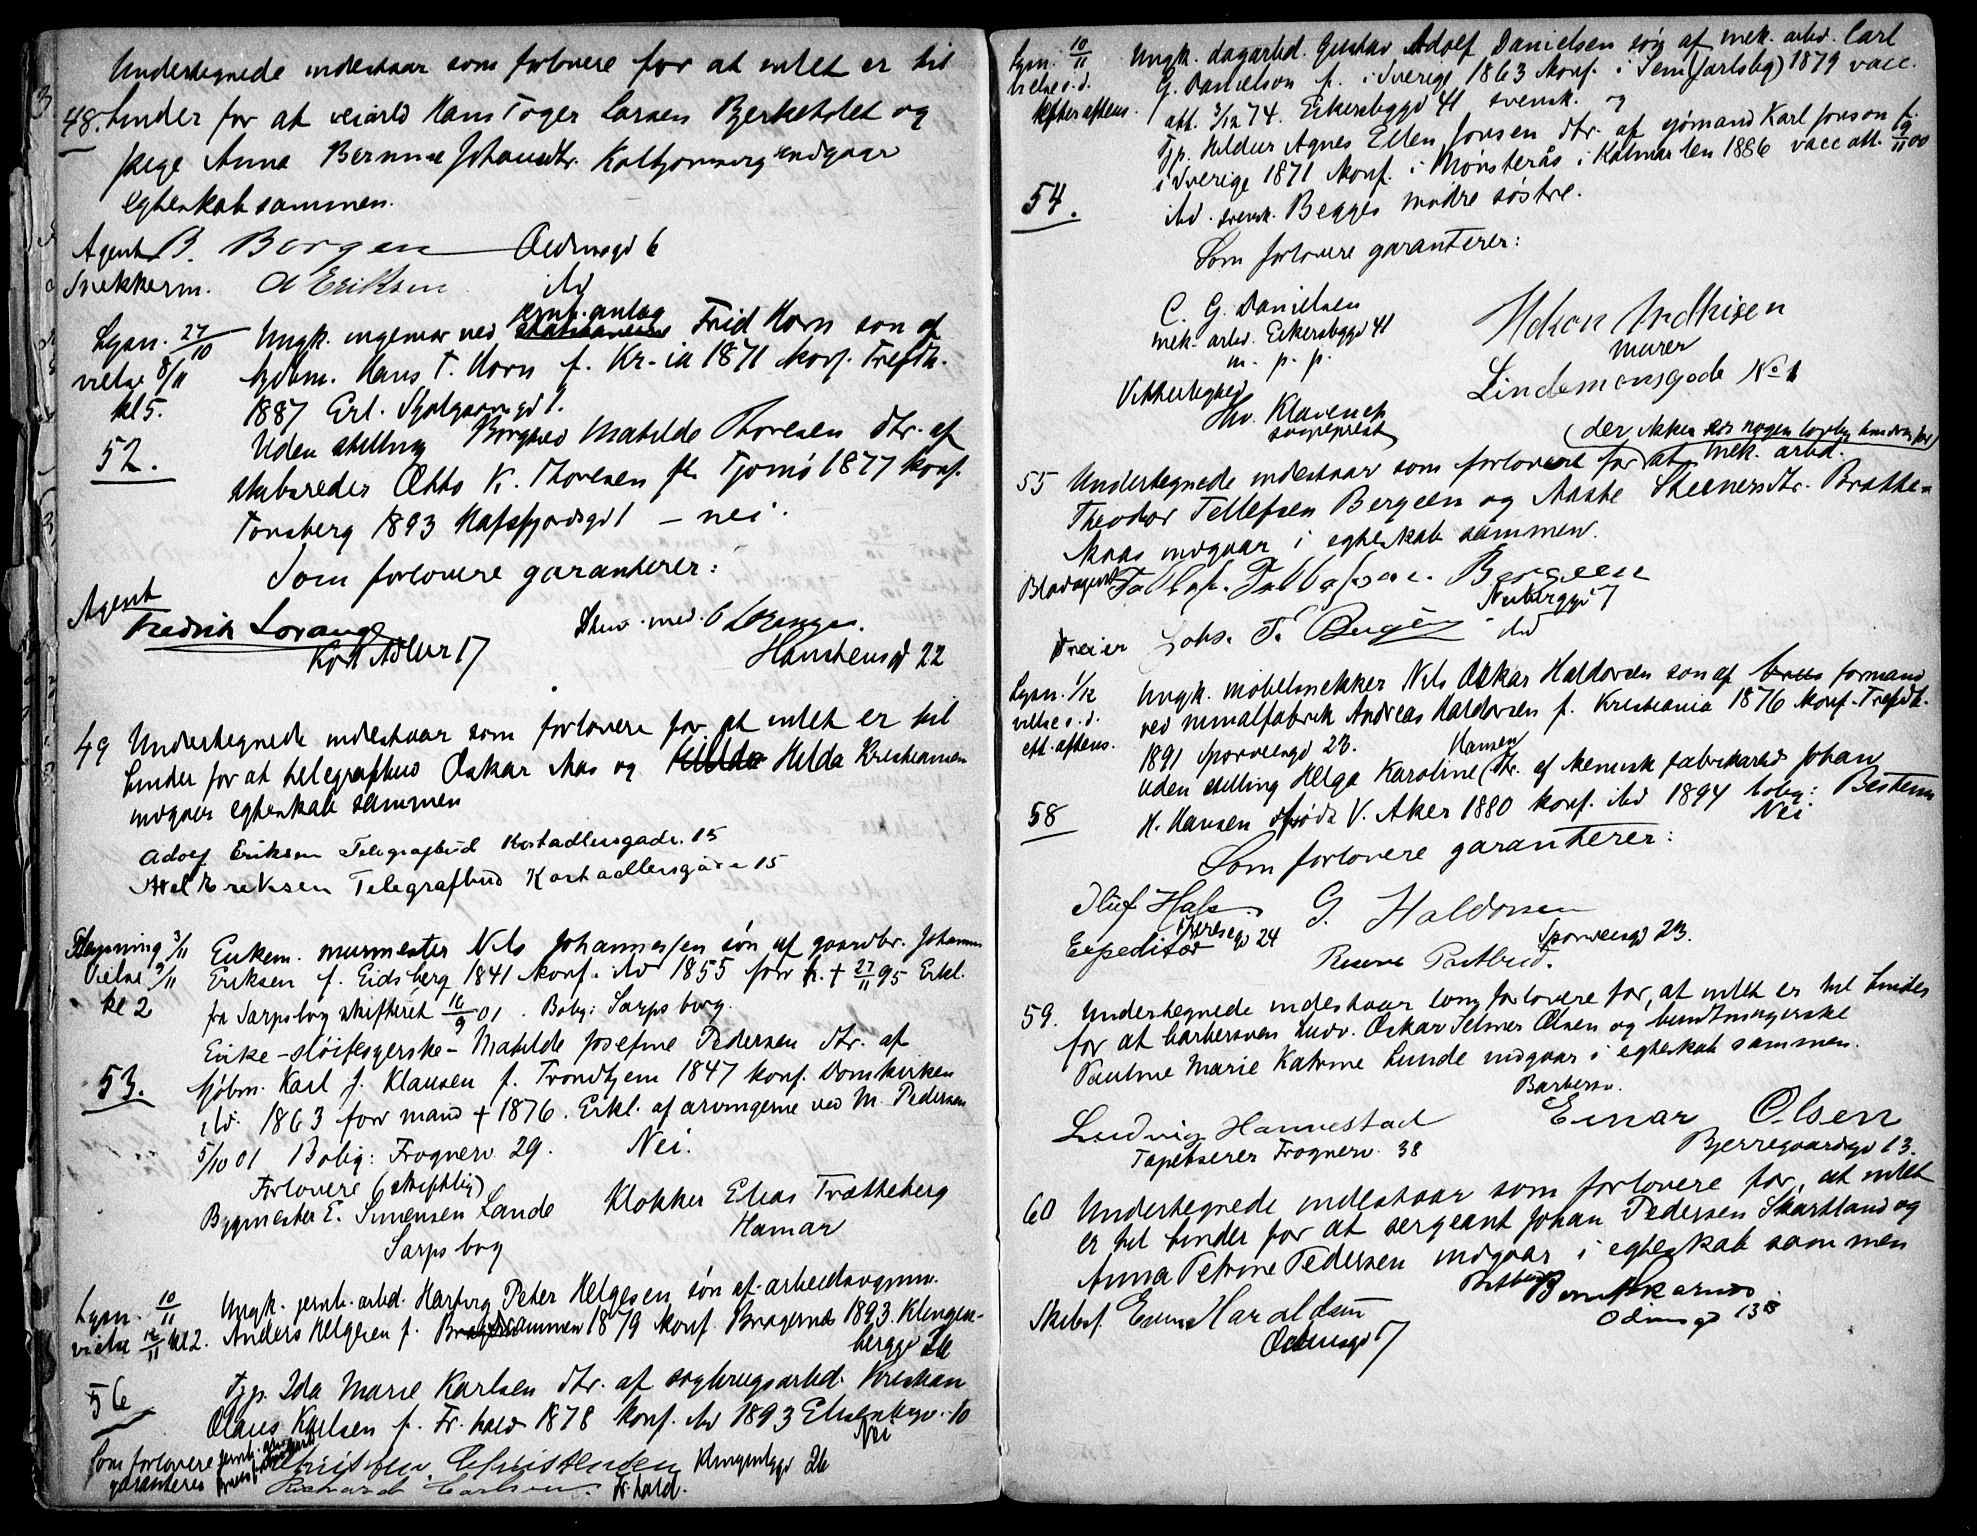 Undertegnede indestaar som forlovere for at intet er til
48. hinder for at veiarbd Hans Toger Larsen Bjerkeholet og
pige Anna Johansdtr. indgaar
egteskab sammen.
Agent B. Borgen Odinsgd 6
Snekkerm. A Eriksen ibd
Lysn. 27/10 Ungk. ingeniør ved jernb. anlæg Frid Horn søn af
vielse 8/11 kjøbm. Hans T. Horn f. Kr-ia 1871 konf. Trefdh.
kl 5. 1887
52. Uden stilling Borghild Matilde Thoresen dtr. af
skibsreder Otto K. Thoresen f. Tjømø 1877 konf.
Tønsberg 1893 Hafsfjordsgd 1 – nei.
Som forlovere garanterer:
Agent
Fredrik Lorange
Kort Adler 17
Stud. med. O Lorange.
Hanstensgd 22
49 Undertegnede indestaar som forlovere for at intet er til
hinder for at telegrafbud Oskar Aas og Hilda Kristiansen
indgaar egteskab sammen
Adolf Eriksen Telegrafbud Kortadlersgade. 15
Axel Eriksen Telegrafbud Kortadlersgade 15
Lysning 3/11 Enkem. murmester Nils Johannessen søn af gaardbr. Johannes
Vielse 9/11 Eriksen f. Eidsberg 1841 konf. ibd 1855 forr h. + 27/11 95 Erkl.
kl 2 fra Sarpsborg skifteret 16/9 01. Bolig: Sarpsborg.
Enke – – Matilde Josefine Pedersen dtr. af
53. kjøbm. Karl J. Klausen f. Trondhjem 1847 konf. Domkirken
ibd. 1863 forr mand + 1876. Erkl. af arvingerne ved M. Pedersen
5/10 01 Bolig: Frognerv 29. Nei.
Forlovere (skriftlig)
Bygmester E. Simensen Lande
Sarpsborg
Klokker Elias Trætteberg
Hamar
Lysn. 10/11 Ungk. jernb. arbd. Hartvig Peter Helgesen søn af arbeidsvognm.
vielse kl 2. Anders Helgesen f. Drammen 1879 konf. Bragernes 1893. Klingen-
berggd 26
56 Tjp. Ida Marie Karlsen dtr. af sagbrugsarbd. Kristian
Olaus Karlsen f. Fr.hald 1878 konf. ibd 1893 10
Nei
Som forlovere garanteres
Christian Christensen Klingenbggd 26
Richard Carlsen. Fr.hald.
Lysn. 10/11 Ungk. dagarbd. Gustav Adolf Danielsen søn af mek. arbd. Carl
vielse s.d. G. Danielson f. i Sverige 1863 konf. i Sem (Jarlsbg) 1879 vacc.
efter aftens. att. 3/12 74. Eikersbyggd 41 svensk. og
Tjp. Hildur Agnes Ellen Jonsen dtr. af sjømand Karl Jonson f.
i Sverige 1871 konf. i Mønsterås i Kalmar len 1886 vacc att. 00
54. ibd. svensk. Begges mødre søstre.
Som forlovere garanterer:
C. G. Danielsen
mek. arbd. Eikersbyggd 41
m. p. p.
Vitterlighed
Klavenes
sogneprest
Håkon
murer
Lindemansgade No 1
(der ikken er nogen lovlig hindring for)
55 Undertegnede indestaar som forlovere for at mek. arbd.
Theodor Tellefsen Bergeen og Aaste Steenersdtr. Bratte-
indgaar i egteskab sammen.
Tellef. Tellefsen. Bergeen
Neuberggd 7
Dreier Johs. T. ibd
Lysn. 1/12 Ungk. møbelsnekker Nils Oskar Haldorsen søn af formand
vielse s.d. ved Andreas Haldorsen f. Kristiania 1876 konf. Trefdh.
eft. aftens. 1891 Sporveisgd 23.
Uden stilling Helga Karoline Hansen dtr. af kemisk fabrikarbd Johan
58 H. Hansen f. V. Aker 1880 konf. ibd 1894 bolig: Bestum
Nei
Som forlovere garanterer:
Theresegd 24
Expeditør
G. Haldorsen
Sporveisgd 23.
Reserve Postbud.
59. Undertegnede indestaar som forlovere for, at intet er til hinder
for at barbersvend Oskar Selmer Olsen og
Pauline Marie Katrine Lunde indgaar i egteskab sammen.
Ludvig Hannestad
Tapetserer Frognerv. 38
Barbersv.
Einar Olsen
Bjerregaardsgd 13.
60 Undertegnede indestaar som forlovere for, at intet
er til hinder for at sergeant Johan Pedersen Skartland og
Anna Petrine Pedersen indgaar i egteskab sammen
Haraldsen
Odinsgd 17
Postbud
Odinsgd 13